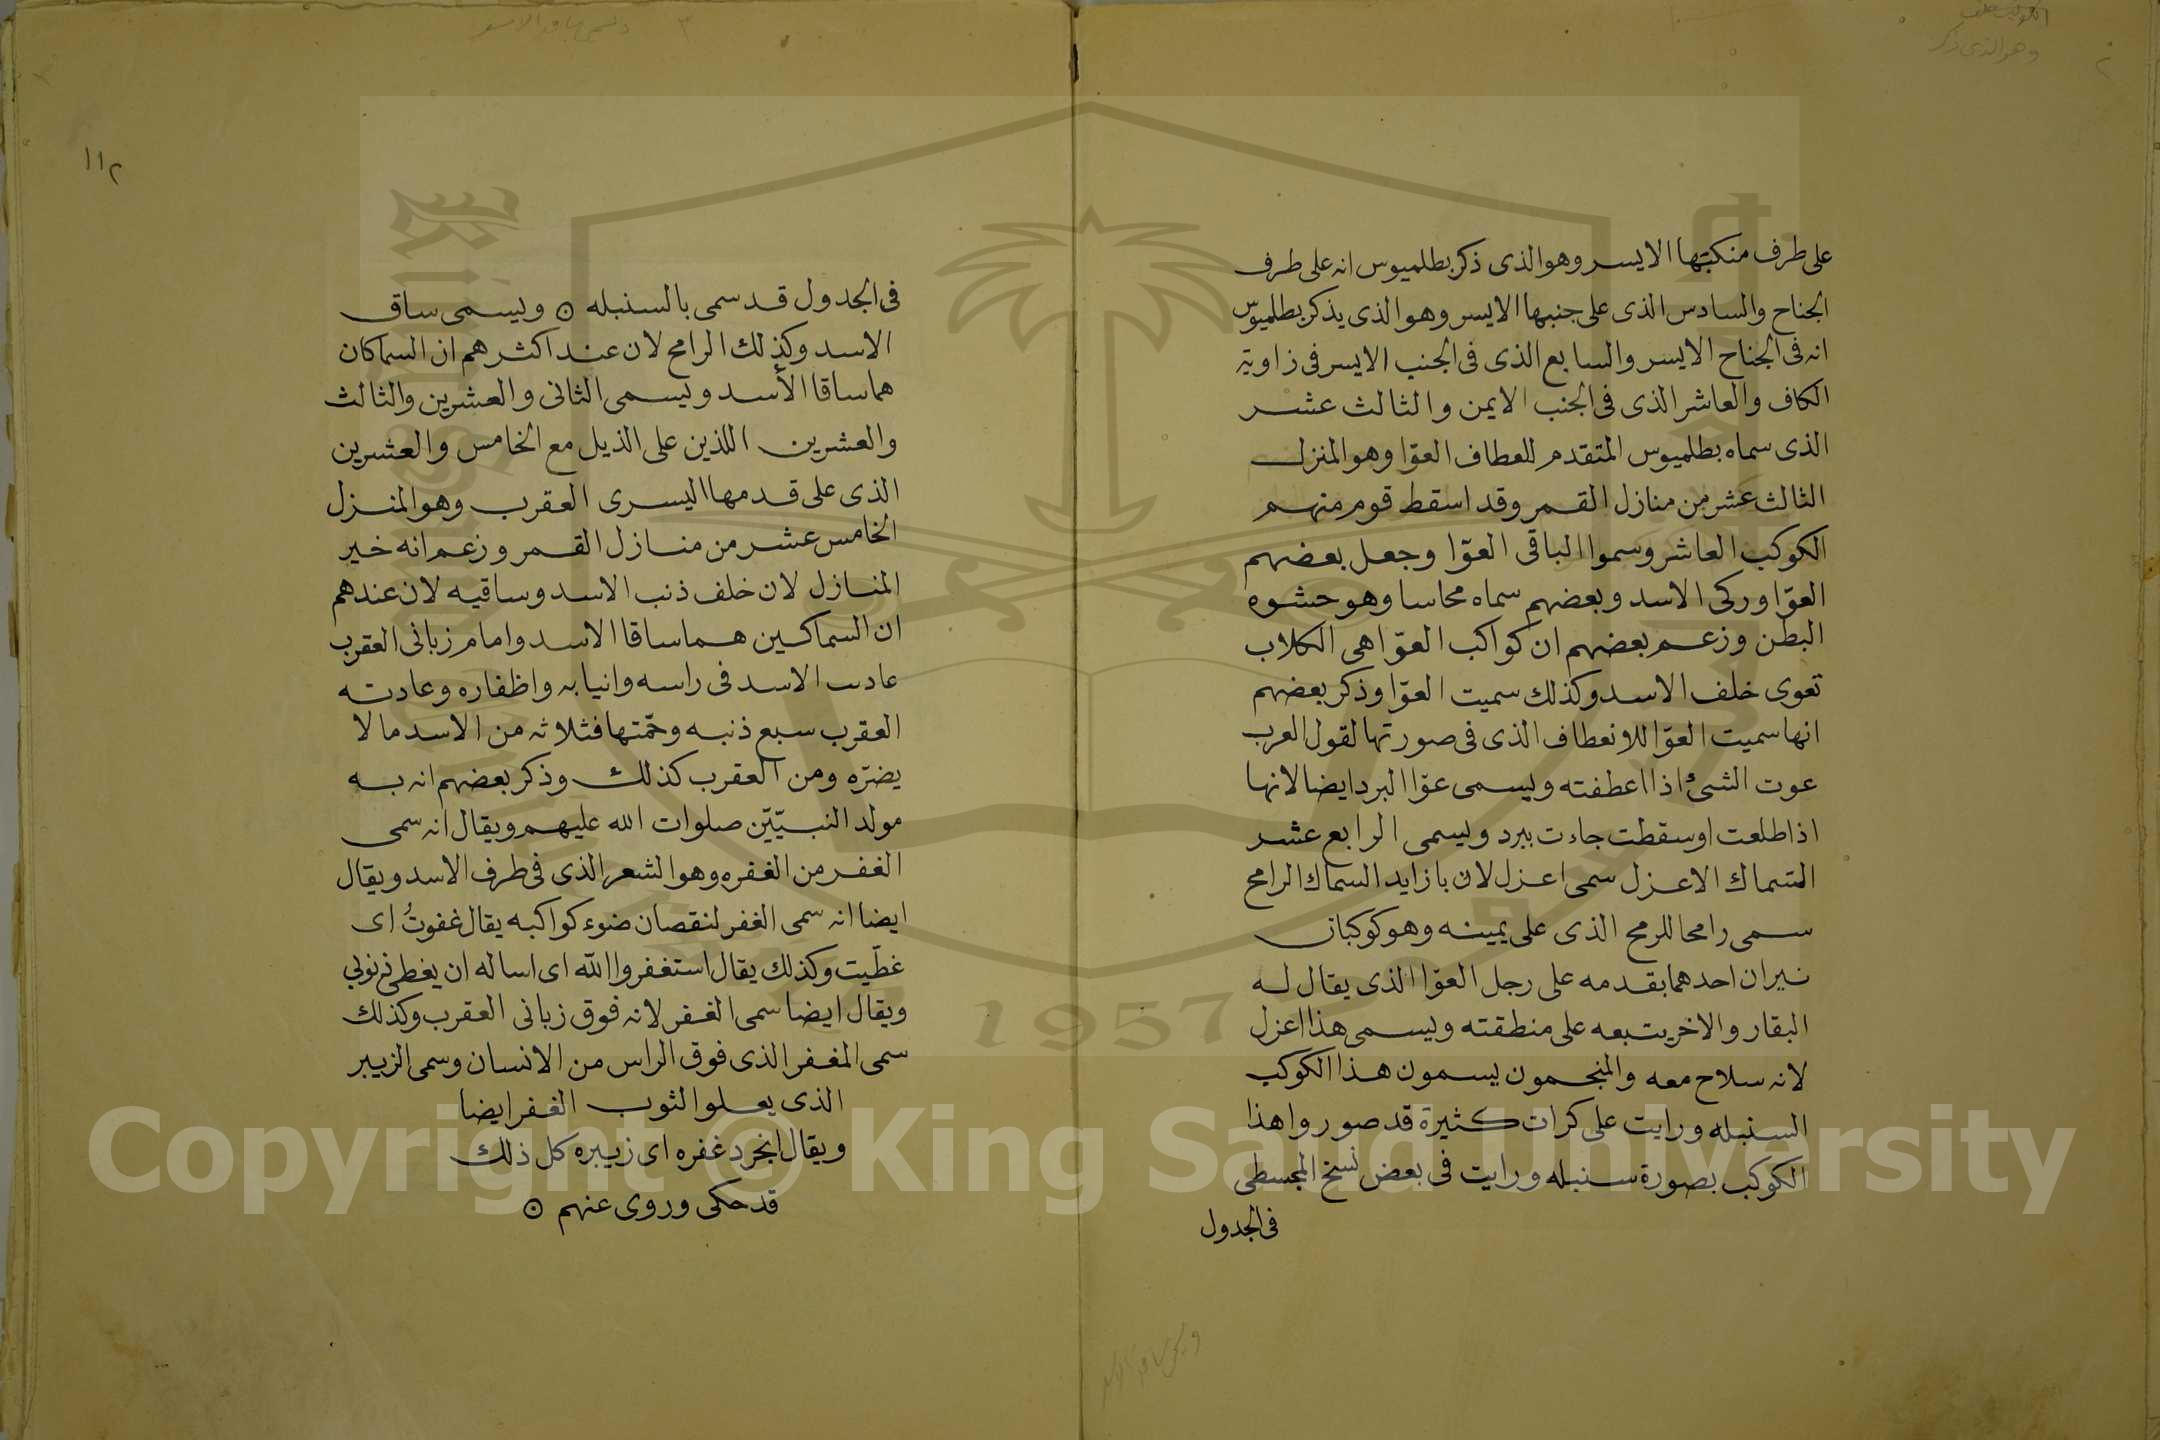 على طرف منكبتها الايسر وهو الذى ذكر بطلميوس انه على طرف
الجناح والسادس الذى على جنبها الايسر وهو الذى يذكر بطلميوس
انه فى الجناح الايسر والسابع الذى فى الجنب الايسر فى زاوية
الكاف والعاشر الذى فى الجنب الايمن والثالث عشر
الذى سماه بطلميوس المتقدم للعطاف العوّا وهو المنزل
الثالث عشر من منازل القمر وقد اسقط قوم منهم
الكوكب العاشر وسموا الباقى العوّا وجعل بعضهم
العوّا وركى الاسد وبعضهم سماه محاسا وهو حشوه
البطن وزعم بعضهم ان كواكب العوّا هى الكلاب
تعوى خلف الاسد وكذلك سميت العوّا وذكر بعضهم
انها سميت العوّا للانعطاف الذى فى صورتها لقول العرب
عوت الشئ اذا اعطفته ويسمى عوّا البرد ايضا لانها
اذا طلعت او سقطت جاءت ببرد ويسمى الرابع عشر
السماك الاعزل سمى اعزل لان بازايد السماك الرامح
سمى رامحا للرمح الذى على يمينه وهو كوكبان
نيران احدهما بقدمه على رجل العوّا الذى يقال له
البقار والاخر يتبعه على منطقته ويسمى هذا اعزل
لانه سلاح معه والمنجمون يسمون هذا الكوكب
السنبله ورايت على كرات كثيرة قد صوروا هذا
الكوكب بصورة سنبله ورايت فى بعض نسخ المجسطى
فى الجدول
١١٢
فى الجدول قد سمى بالسنبله ٥ ويسمى ساق
الاسد وكذلك الرامح لان عند اكثرهم ان السماكان
هما ساقا الأسد ويسمى الثانى والعشرين والثالث
والعشرين اللذين على الذيل مع الخامس والعشرين
الذى على قدمها اليسرى العقرب وهو المنزل
الخامس عشر من منازل القمر وزعم انه خير
المنازل لان خلف ذنب الاسد وساقيه لان عندهم
ان السماكين هما ساقا الاسد وامام زبانى العقرب
عادت الاسد فى راسه وانيابه واظفاره وعادته
العقرب سبع ذنبه وحمّتها فثلاثه من الاسد ما لا
يضرّه ومن العقرب كذلك وذكر بعضهم انه به
مولد النبيّيّن صلوات الله عليهم ويقال انه سمى
الغفر من الغفره وهو الشعر الذى فى طرف الاسد ويقال
ايضا انه سمى الغفر لنقصان ضوء كواكبه يقال غفوتُ اى
غطّيت وكذلك يقال استغفروا اللّه اى اساله ان يغطى ذنوبى
ويقال ايضا سمى الغفر لانه فوق زبانى العقرب وكذلك
سمى المغفر الذى فوق الراس من الانسان وسمى الزيبر
الذى يعلو الثوب الغفر ايضا
ويقال انجرد غفره اى زيبره كل ذلك
قد حكى وروى عنهم ٥
1957
Copyright © King Saud University